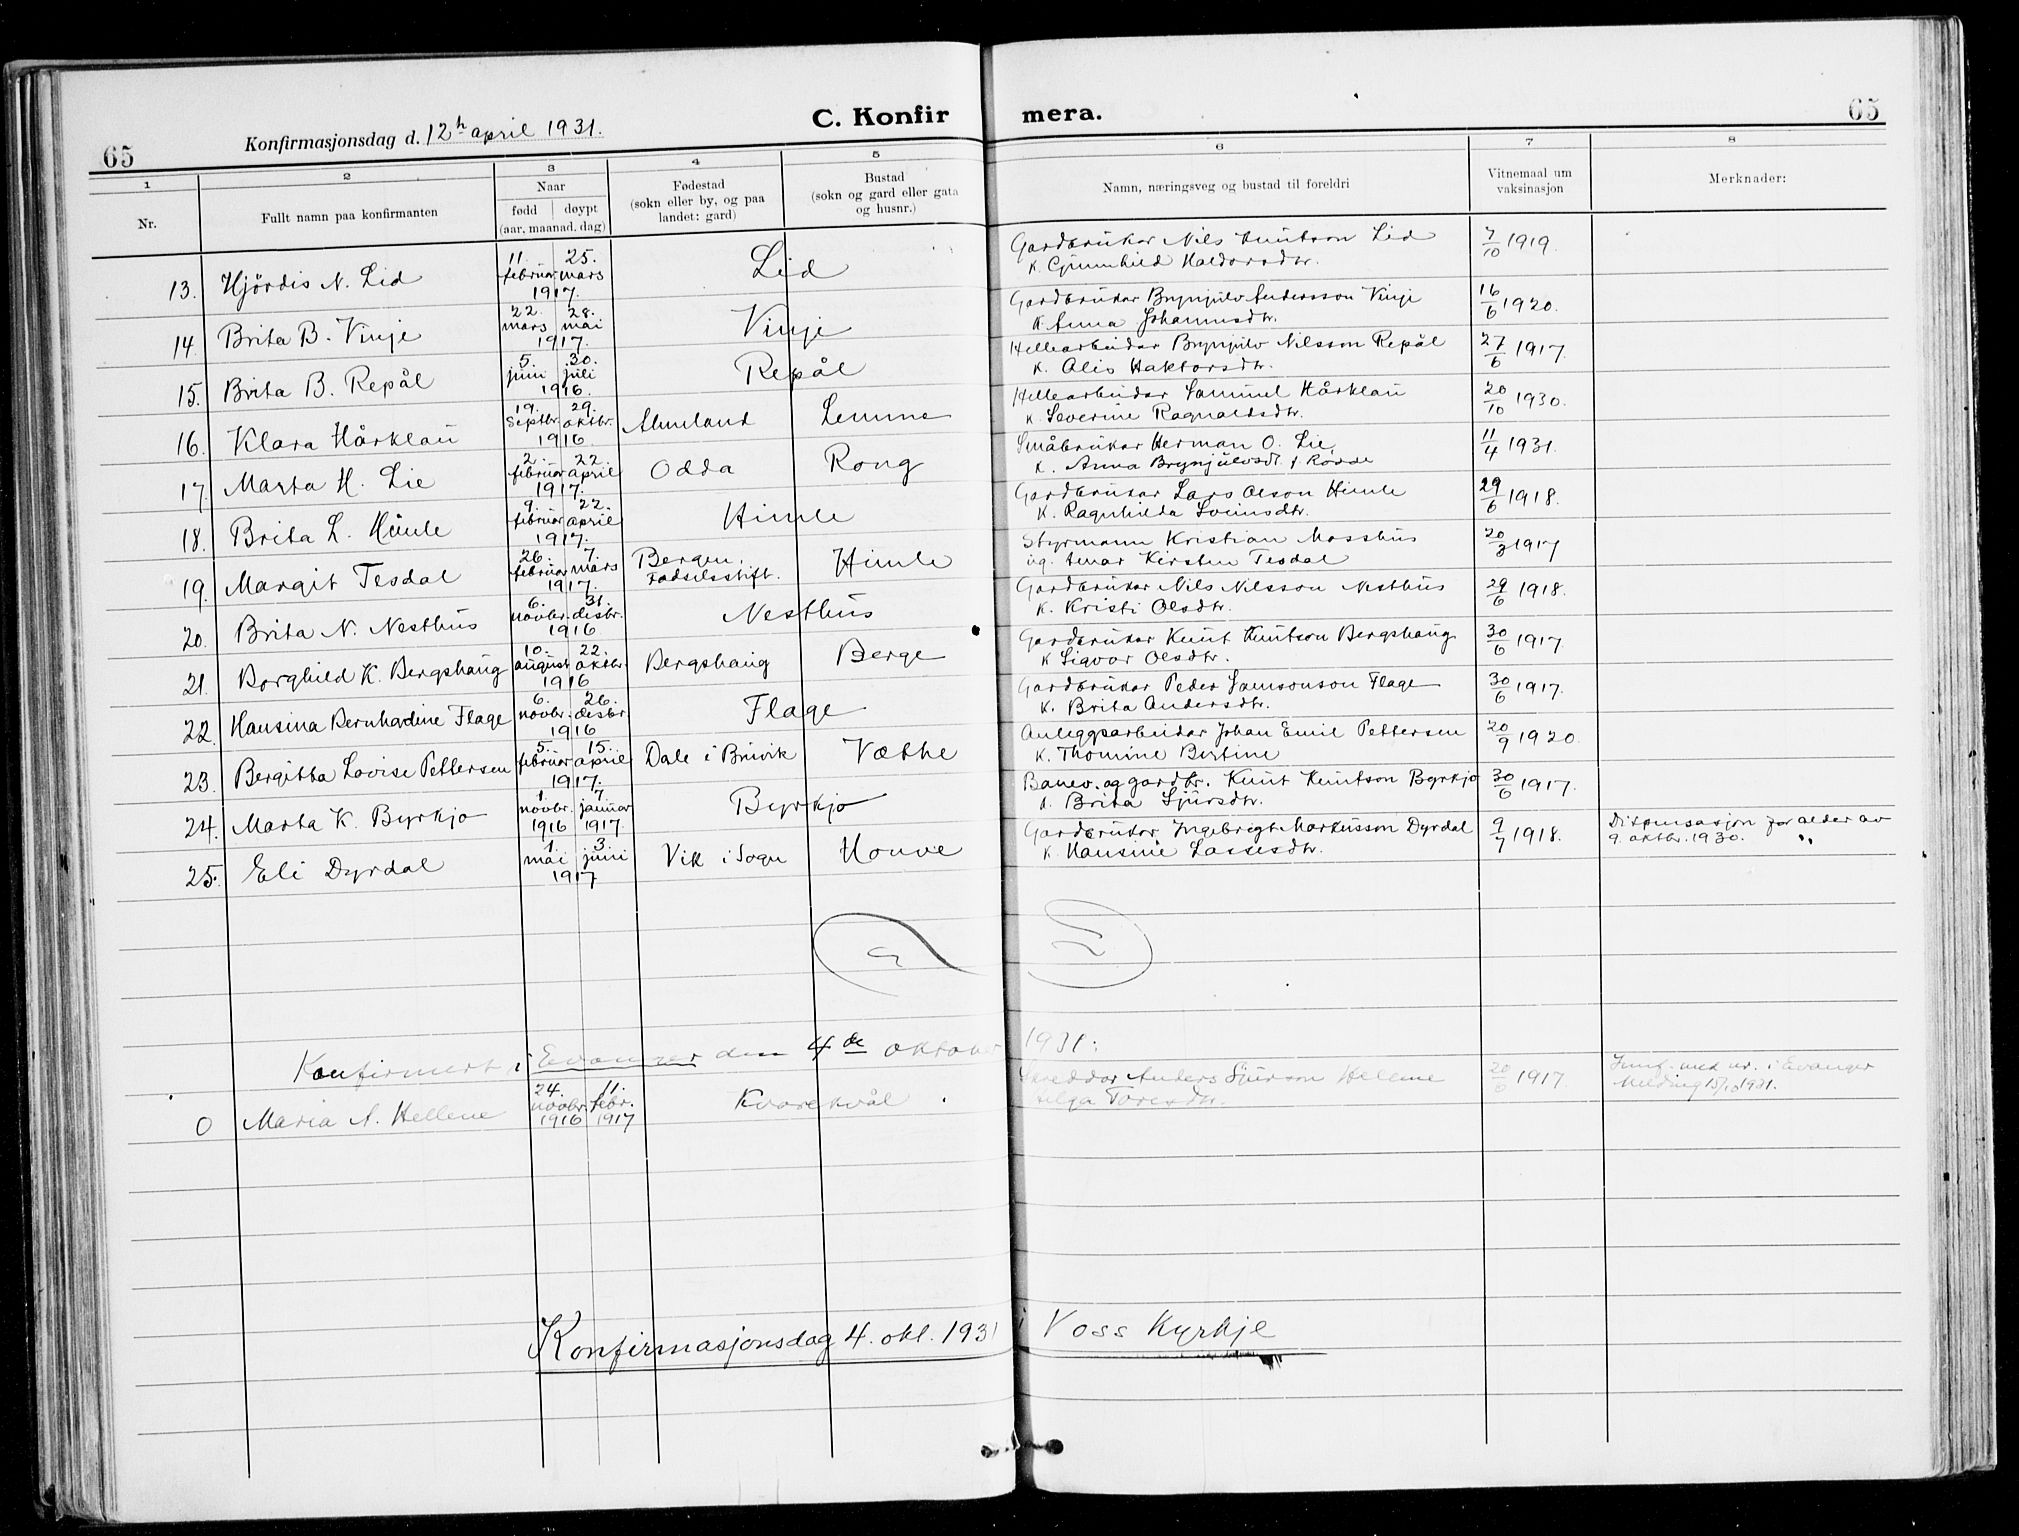 65
Konfirmasjonsdag d. 12h april 1931.
C. Konfirmera.
65
1 2 3 4 5 6 7 8
Nr.
Fullt namn paa konfirmanten
Naar
fødd | døypt
(aar. maanad. dag)
Fødestad
(sokn eller by, og paa
landet: gard)
Bustad
(sokn og gard eller gata
og husnr.)
Namn, næringsveg og bustad til foreldri
Vitnemaal um
vaksinasjon
Merknader:
13. Hjördis N. Lid 11. februar 25. mars 1917. Lid Gardbrukar Nils Knutson Lid 7/10 1919.
k. Gunnhild Haldorsdtr.
14. Brita B. Vinje 22. mars 28. mai 1917. Vinje Gardbrukar Brynjulv Andersson Vinje 16/6 1920.
k. Anna Johannesdtr.
15. Brita B. Repål 5. juni 30. juli 1916. Repål Hellearbeidar Brynjulv Nilsson Repål 27/6 1917.
k. Alis Haktorsdtr.
16. Klara Hårklau 19. Septbr. 29. oktbr. 1916. Almeland Lemme Hellearbeidar Sammel Hårklau 20/10 1930.
k. Severine Ragnaldsdtr.
17. Marta H. Lie 2. februar 22. april 1917. Odda Rong Småbrukar Herman O. Lie 11/4 1931.
k. Anna Brynjulvsdt. f. Rödde
18. Brita L. Himle 9. februar 22. april 1917. Himle Gardbrukar Lars Olson Himle 29/6 1918.
k. Ragnhilda Sveinsdtr.
19. Margit Tesdal 26. februar 7. mars 1917. Bergen, Födselsstift. Himle Styrmann Kristian Mosshus 20/3 1917
ug. Anna Kirsten Tesdal
20. Brita N. Nesthus 6. novbr. 31. desbr. 1916 Nesthus Gardbrukar Nils Nilsson Nesthus 29/6 1918.
k. Kristi Olsdtr.
21. Borghild K. Bergshaug 10. august 22. oktbr. 1916 Bergshaug Berge Gardbrukar Knut Knutson Bergshaug 30/6 1917.
k Sigvor Olsdtr.
22. Hansina Bernhardine Flage 6. novbr. 26. desbr. 1916 Flage Gardbrukar Peder Samsonson Flage 30/6 1917.
k. Brita Andersdtr.
23. Bergitta Lovise Pettersen 5. februar 15. april 1917. Dale i Bruvik Væthe Anleggsarbeidar Johan Emil Pettersen 20/9 1920.
k. Thomine Bertine
24. Marta K. Byrkjo 1. novbr. 1916 7. januar 1917. Byrkjo Banev. og gardbr. Knut Knutson Byrkjo 30/6 1917.
k. Brita Sjursdtr.
25. Eli Dyrdal 1. mai 3. juni 1917 Vik i Sogn Houve Gardbrukar Ingebregt Markusson Dyrdal 9/7 1918. Dispensasjon for alder av
k. Hansine Lassesdtr. 9. oktbr. 1930.
Konfirmert i Evanger den 4de oktober 1931:
0 Maria A. Hellene 24. novbr. 1916 11. febr. 1917 Kvarekvål Skreddar Anders Sjurson Hellene 20/6 1917. Innf. med nr. i Evanger
Helga Toresdtr. Melding 15/10 1931.
Konfirmasjonsdag 4. okt. 1931 i Voss Kyrkje